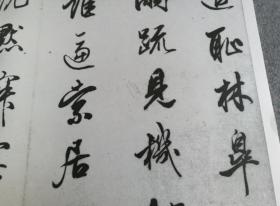 耻林皋
疏見機
谁逼索居
默寂